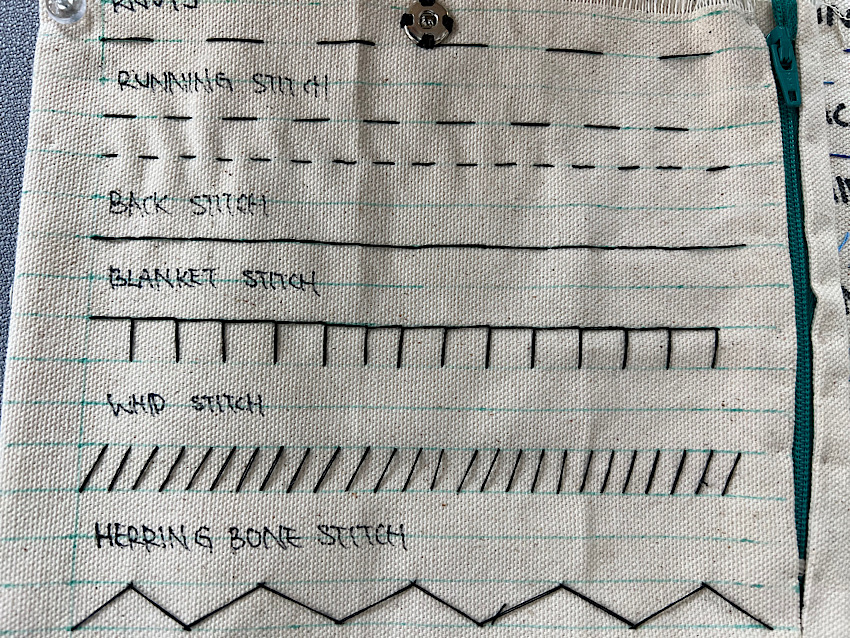 KNOTS
RUNNING STITCH
BACK STITCH
BLANKET STITCH
WHIP STITCH
HERRING BONE STITCH